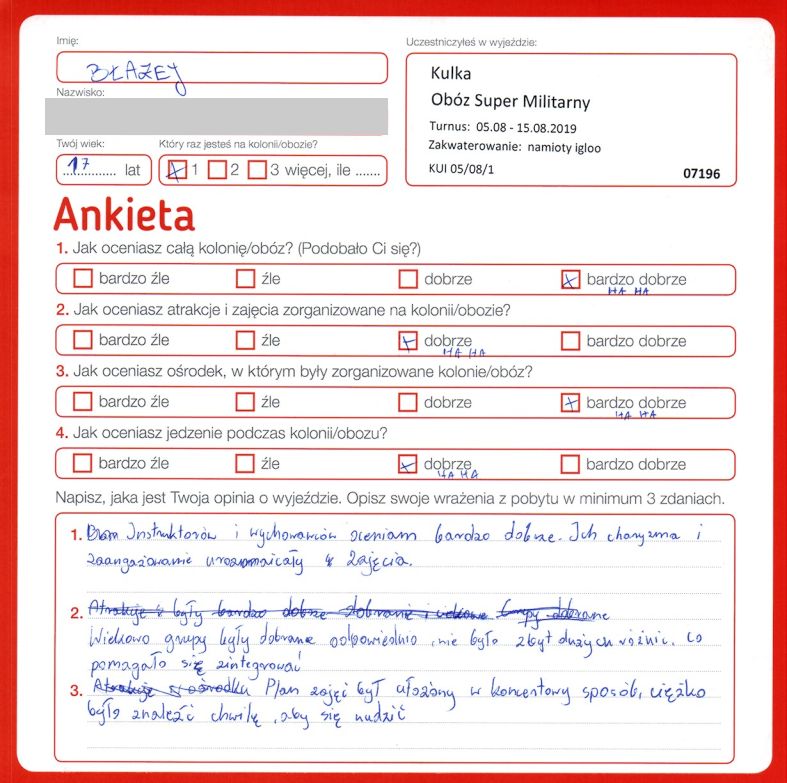 Imię:
BŁAŻEJ
Nazwisko:
Uczestniczyłeś w wyjeździe:
Kulka
Obóz Super Militarny
Turnus: 05.08 - 15.08.2019
Zakwaterowanie: namioty igloo
KUI 05/08/1 07196
Twój wiek:
17 lat
Który raz jesteś na kolonii/obozie?
1 2 3 więcej, ile .......
Ankieta
1. Jak oceniasz całą kolonię/obóz? (Podobało Ci się?)
bardzo źle źle dobrze bardzo dobrze
HA HA
2. Jak oceniasz atrakcje i zajęcia zorganizowane na kolonii/obozie?
bardzo źle źle dobrze bardzo dobrze
HA HA
3. Jak oceniasz ośrodek, w którym były zorganizowane kolonie/obóz?
bardzo źle źle dobrze bardzo dobrze
HA HA
4. Jak oceniasz jedzenie podczas kolonii/obozu?
bardzo źle źle dobrze bardzo dobrze
HA HA
Napisz, jaka jest Twoja opinia o wyjeździe. Opisz swoje wrażenia z pobytu w minimum 3 zdaniach.
1. Instruktorów i wychowawców oceniam bardzo dobrze. Ich charyzma i
zaangażowanie urozmaicały zajęcia.
2. Atrakcje były bardzo dobrze dobrane i ciekawe Grupy dobrane
Wiekowo grupy były dobrane odpowiednio, nie było zbyt dużych różnic, co
pomagało się zintegrować
3. Atrakcje ośrodku Plan zajęć był ułożony w koncertowy sposób, ciężko
było znaleźć chwilę, aby się nudzić